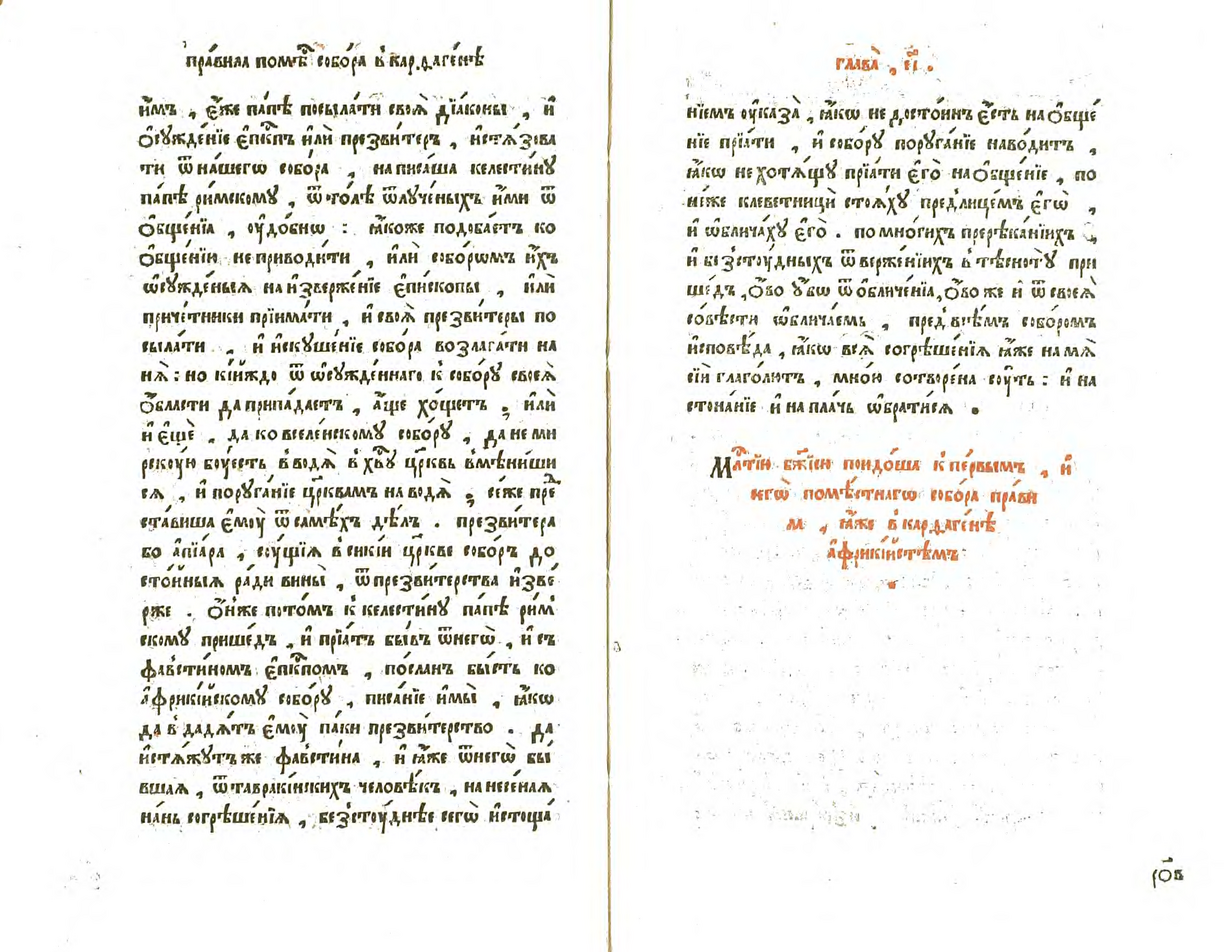 пра́вила помѣⷭ҇ собо́ра в̾ кардаге́нѣ
и҆̀мъ , є҆́же па́пѣ посыла́ти своѧ̀ дїа́коны , и҆
ѻ҆сужде́нїе є҆пⷭ҇кпъ и҆лѝ презви́теръ , и҆стѧ́зова
ти ѿ на́шегѡ собо́ра , написа́ша келести́нꙋ
па́пѣ ри́мскомꙋ , ѿто́лѣ ѿлꙋ́ченыхъ и҆́ми ѿ
ѻ҆бще́нїа , ᲂу҆до́бнѡ : ꙗ҆́коже подоба́етъ ко
ѻ҆бще́нїю не приводи́ти , и҆лѝ собо́рѡмъ и҆́хъ
ѡ҆сꙋжде́ныѧ на и҆зверже́нїе є҆пи́скопы , и҆лѝ
приче́тники прїима́ти , и҆ своѧ̀ презви́теры по
сыла́ти , и҆ и҆скꙋше́нїе собо́ра возлага́ти на
нѧ̀ : но кі́йждо ѿ ѡ҆сꙋжде́ннаго к̾ собо́рꙋ своеѧ̀
ѻ҆́бласти да припа́даетъ , а҆́ще хо́щетъ , и҆лѝ
и҆ є҆щѐ , да ко вселе́нскомꙋ собо́рꙋ , да не ми
рскоую боу́есть в̾водѧ̀ в̾ хв҃ꙋ цр҃ковь в̾мѣни́ши
сѧ , и҆ порꙋга́нїе цр҃квамъ наводѧ̀ , се́же пре
ста́виша є҆моу̀ ѿ самѣ́хъ дѣ́лъ . презви́тера
бо а҆пїа́ра , соу́щїѧ в̾ сики́и цр҃кве собо́ръ до
сто́йныѧ ра́ди вины̀ , ѿ презви́терства и҆зве́
рже . ѻ҆́нже пото́мъ к̾ келести́нꙋ па́пѣ ри́м
скомꙋ прише́дъ , и҆ прїѧ́тъ бы́въ ѿ негѡ̀ , и҆ съ
фавсти́номъ є҆пⷭ҇кпомъ , по́сланъ бы́сть ко
а҆фрикі́йскомꙋ собо́рꙋ , писа́нїе и҆мы̀ , ꙗ҆́кѡ
да в̾дадѧ́тъ є҆моу̀ па́ки презви́терство . да
и҆стѧ́жꙋтъ же фавсти́на , и҆ ꙗ҆́же ѿ негѡ̀ бы́
вшаѧ , ѿ тавракі́нскихъ человѣ́къ , нанесе́наѧ
на́нь согрѣше́нїѧ , без̾стоу́днѣе сегѡ̀ и҆стоща́
глава̀ , є҃і .
нїемъ ᲂу҆каза̀ , ꙗ҆́кѡ не досто́инъ є҆́сть на ѻ҆бще́
нїе прїѧ́ти , и҆ собо́рꙋ порꙋга́нїе наво́дитъ ,
ꙗ҆́кѡ не хотѧ́щꙋ прїѧ́ти є҆го̀ на ѻ҆бще́нїе , по
не́же клеветницы̀ стоѧ́хꙋ пред̾ лице́мъ є҆гѡ̀ ,
и҆ ѡ҆блича́хꙋ є҆го̀ . по мно́гихъ пререка́нїихъ ,
и҆ без̾стоу́дныхъ ѿверже́нїихъ в̾ тѣсноту̀ при
ше́дъ , ѻ҆́во ᲂу҆́бѡ ѿ ѻ҆бличе́нїѧ , ѻ҆́во же и҆ ѿ своеѧ̀
со́вѣсти ѡ҆блича́емь , пред̾ всѣ́мъ собо́ромъ
и҆сповѣ́да , ꙗ҆́кѡ всѧ̀ согрѣше́нїѧ ꙗ҆́же на мѧ̀
сїѝ глаго́лютъ , мно́ю сотворе́на соу́ть : и҆ на
стона́нїе и҆ на пла́чь ѡ҆брати́сѧ .
Млⷭ҇тїю бж҃їею поидо́ша к̾ пе́рвымъ , и҆
сегѡ̀ помѣ́стнагѡ собо́ра пра́ви
ла , ꙗ҆́же в̾ кардаге́нѣ
а҆фрикі́йстѣмъ